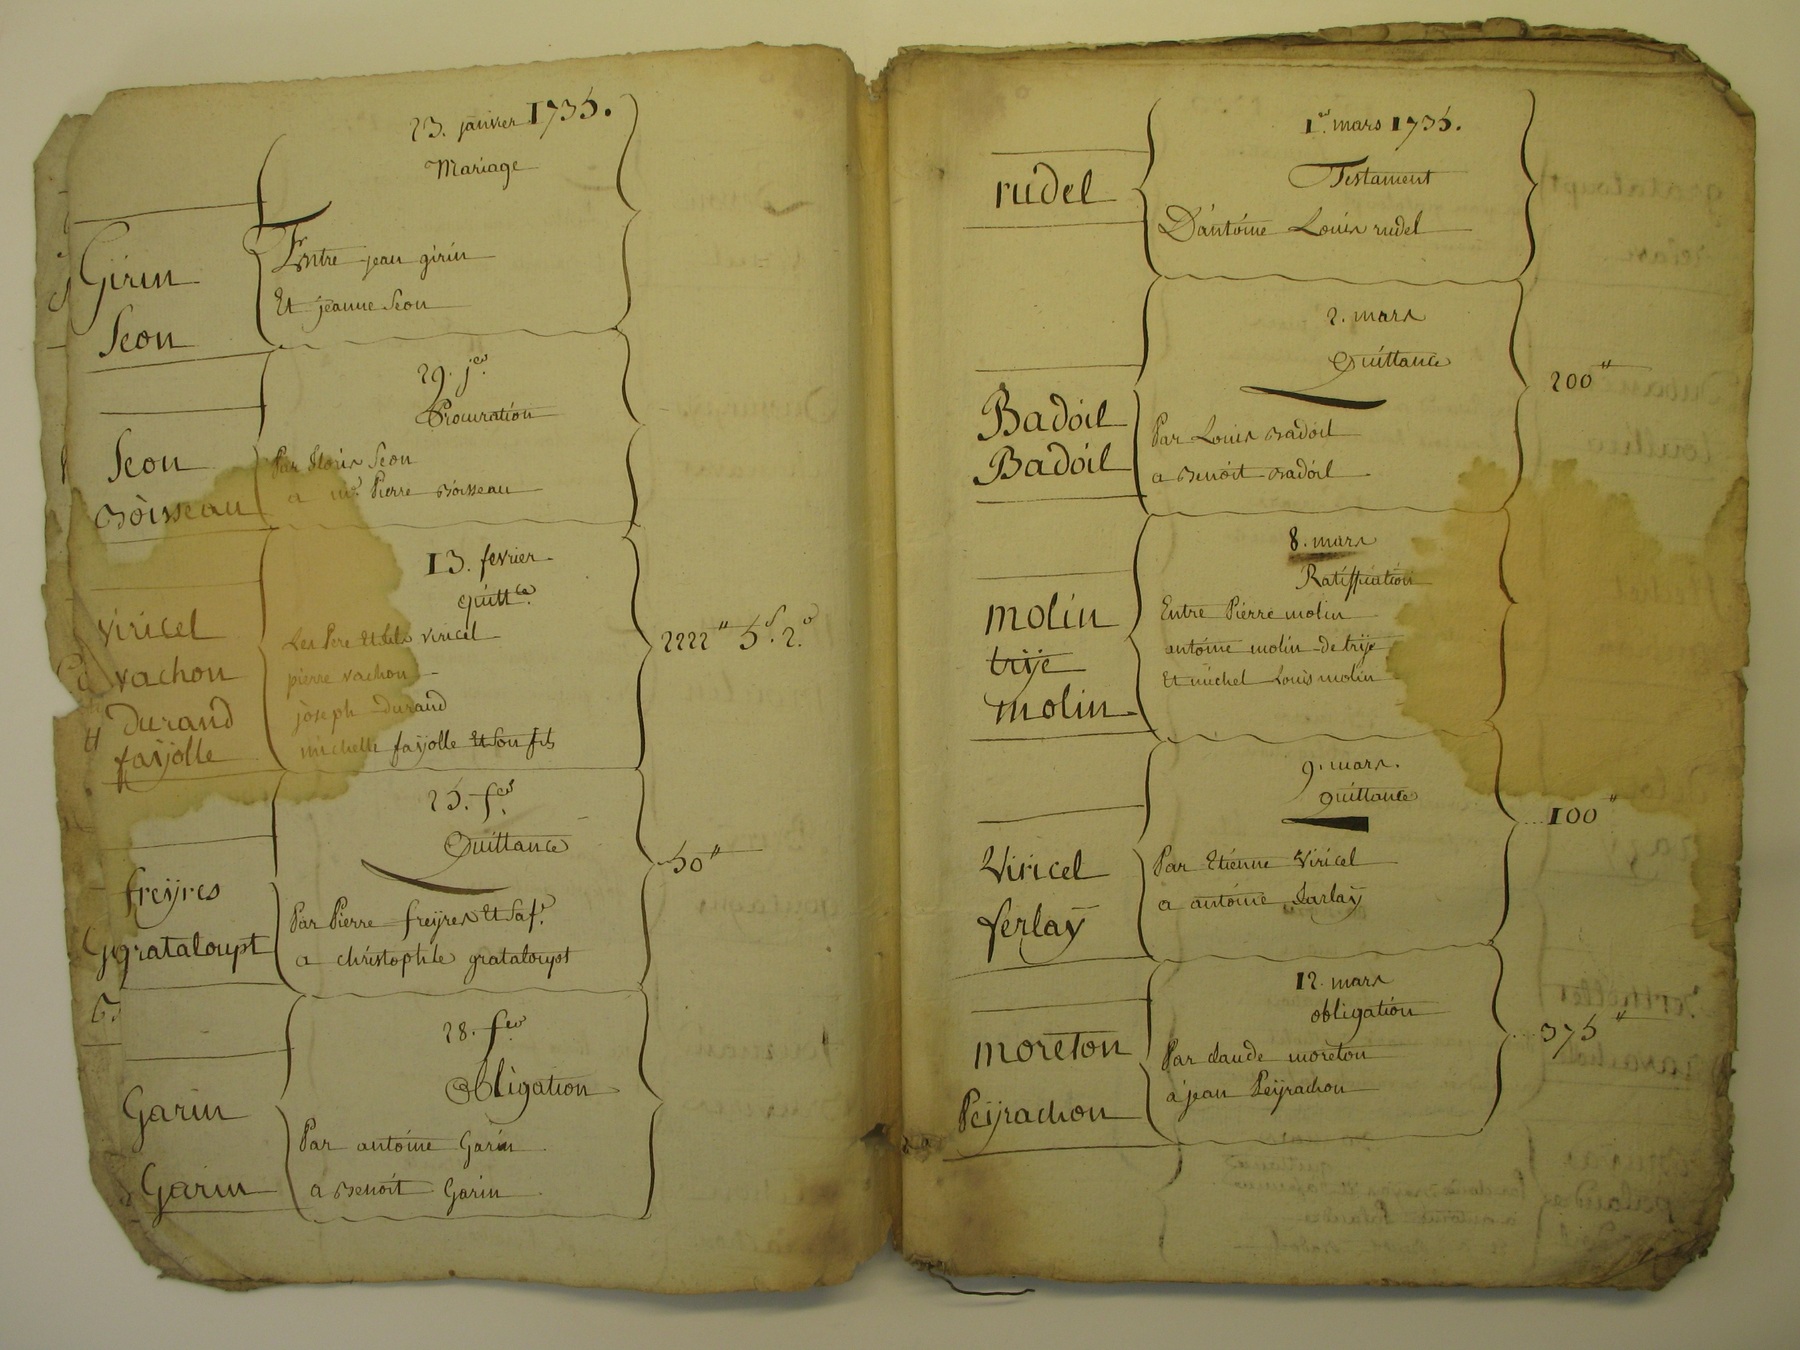 23. janvier 1735.
Mariage
Girin
Seon
Entre jean girin
Et jeanne Seon
29. j.er
Procuration
Seon
Boisseau
Par Seon
a me. Pierre Boisseau
13. fevrier
quitt.ce
Viricel
vachon
Durand
faÿolle
Les Pere Et fils viricel
pierre vachon
joseph Durand
michelle faÿolle Et Son fils
2222" 5.s 2.d
25. f.er
Quittance
freÿres
grataloupt
Par Pierre freÿres Et Saf.e
a christophle grataloupt
50"
28. f.er
Obligation
Garin
Garin
Par antoine Garin
a Benoit Garin
1.er mars 1735.
Testament
rudel
D'antoine Louis rudel
2. mars
Quittance
Badoil
Badoil
Par Louis Badoil
a Benoit Badoil
200"
8. mars
Ratiffication
molin
trije
molin
Entre Pierre molin
antoine molin de trije
Et michel Louis molin
9. mars.
quittance
Viricel
ferlaÿ
Par Etienne Viricel
a antoine
100"
12. mars
obligation
moreton
Peÿrachon
Par claude moreton
à jean Peÿrachon
375"